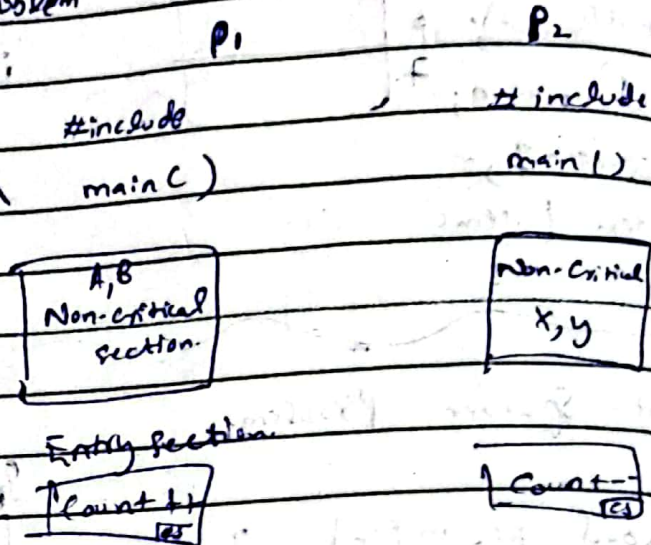 P1 P2
#include # include
main() main()
A,B
Non-critical
section.
Non-Critical
x,y
Entry section.
Count ++
CS
Count--
CS